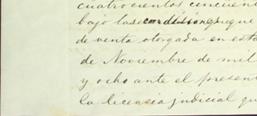 cuatrocientos cincuen
bajo las condiciones que
de venta otorgada en esta
de Noviembre de mil
y ocho ante el presen
la licencia judicial qu